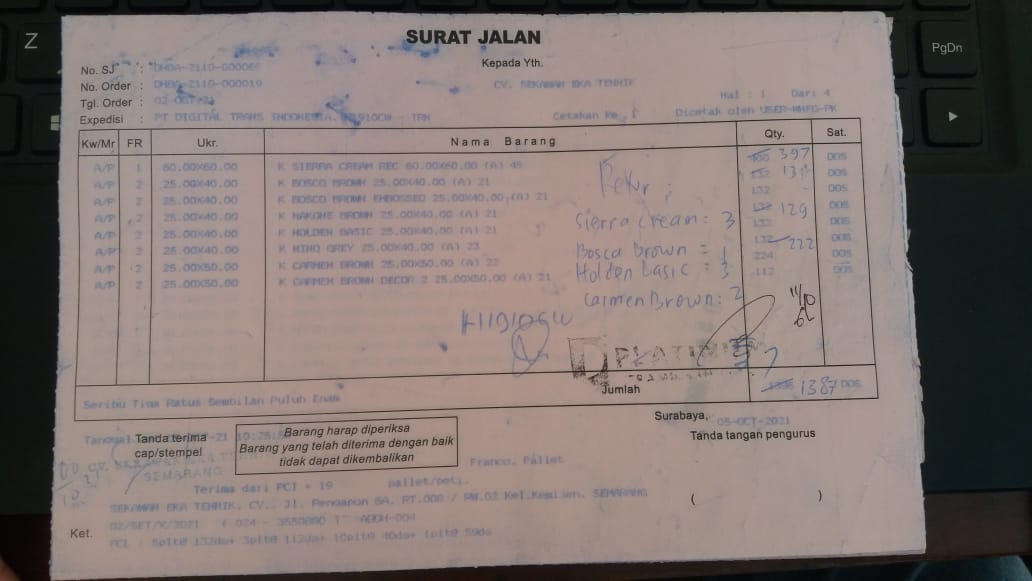 SURAT JALAN
Kepada Yth.
No. SJ : DHBA-2110-000066
CV. SEKAWAN EKA TEHNIK
No. Order : DHBA-2110-000019
Hal : 1 Dari 4
Tgl. Order : 02-OCT-21
Cetakan Ke
Dicetak oleh USER-WHFG-PK
Expedisi : PT DIGITAL TRANS INDONESIA, H1910GW TRN
Kw/Mr FR Ukr. Nama Barang Qty. Sat.
A/P 1 60.00X60.00 K SIERRA CREAM REC 60.00X60.00 (A) 45 400 397 DOS
A/P 2 25.00X40.00 K BOSCO BROWN 25.00X40.00 (A) 21 132 131 DOS
A/P 2 25.00X40.00 K BOSCO BROWN EMBOSSED 25.00X40.00 (A) 21 132 - DOS
A/P 2 25.00X40.00 K HAKONE BROWN 25.00X40.00 (A) 21 132 DOS
A/P 2 25.00X40.00 K HOLDEN BASIC 25.00X40.00 (A) 21 132 129 DOS
A/P 2 25.00X40.00 K MINO GREY 25.00X40.00 (A) 23 132 DOS
A/P 2 25.00X50.00 K CARMEN BROWN 25.00X50.00 (A) 22 224 222 DOS
A/P 2 25.00X50.00 K CARMEN BROWN DECOR 2 25.00X50.00 (A) 21 112 DOS
Retur :
Sierra Cream : 3
Bosca Brown = 1
Holden basic : 3
Carmen Brown : 2
H1910GW
11/10
PLATINUM
Jumlah 1387 DOS
Seribu Tiga Ratus Sembilan Puluh Enam
Surabaya, 05-OCT-2021
Tanda tangan pengurus
Tanda terima
cap/stempel
Barang harap diperiksa
Barang yang telah diterima dengan baik
tidak dapat dikembalikan
SEMARANG
Franco, Pallet
Terima dari PCI = 19 pallet/peti.
SEKAWAN EKA TEHNIK, CV., Jl. Pengapon 6A, RT.000 / RW.02 Kel.Kemijen, SEMARANG
( )
02/SET/X/2021 ( 024 - 3550880 )
Ket. PCI : 5plt@ 132ds+ 3plt@ 112ds+ 10plt@ 40ds+ 1plt@